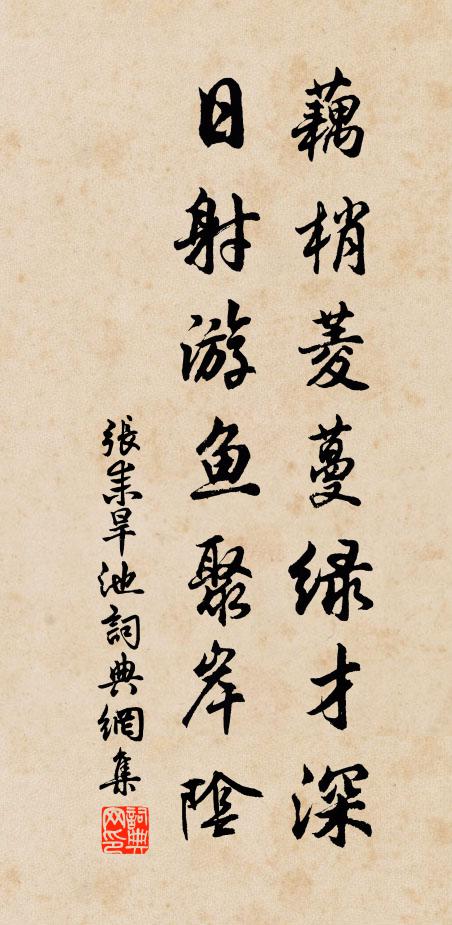 藕梢菱蔓绿才深
日射游鱼聚岸陰
張耒旱池詞典網集
詞典网印